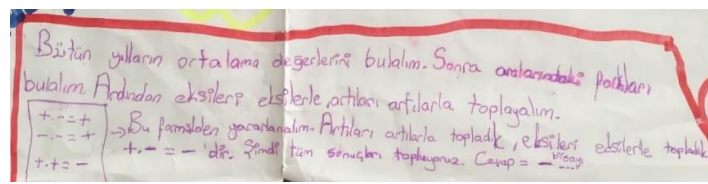 Bütün yılların ortalama değerlerini bulalım. Sonra aralarındaki farkları
bulalım. Ardından eksileri eksilerle, artıları artılarla toplayalım.
+.-=+
-.-=+
+.+=-
→ Bu formülden yararlanalım. Artıları artılarla topladık, eksileri eksilerle topladık
+.-=-'dir. Şimdi tüm sonuçları topluyoruz. Cevap = -